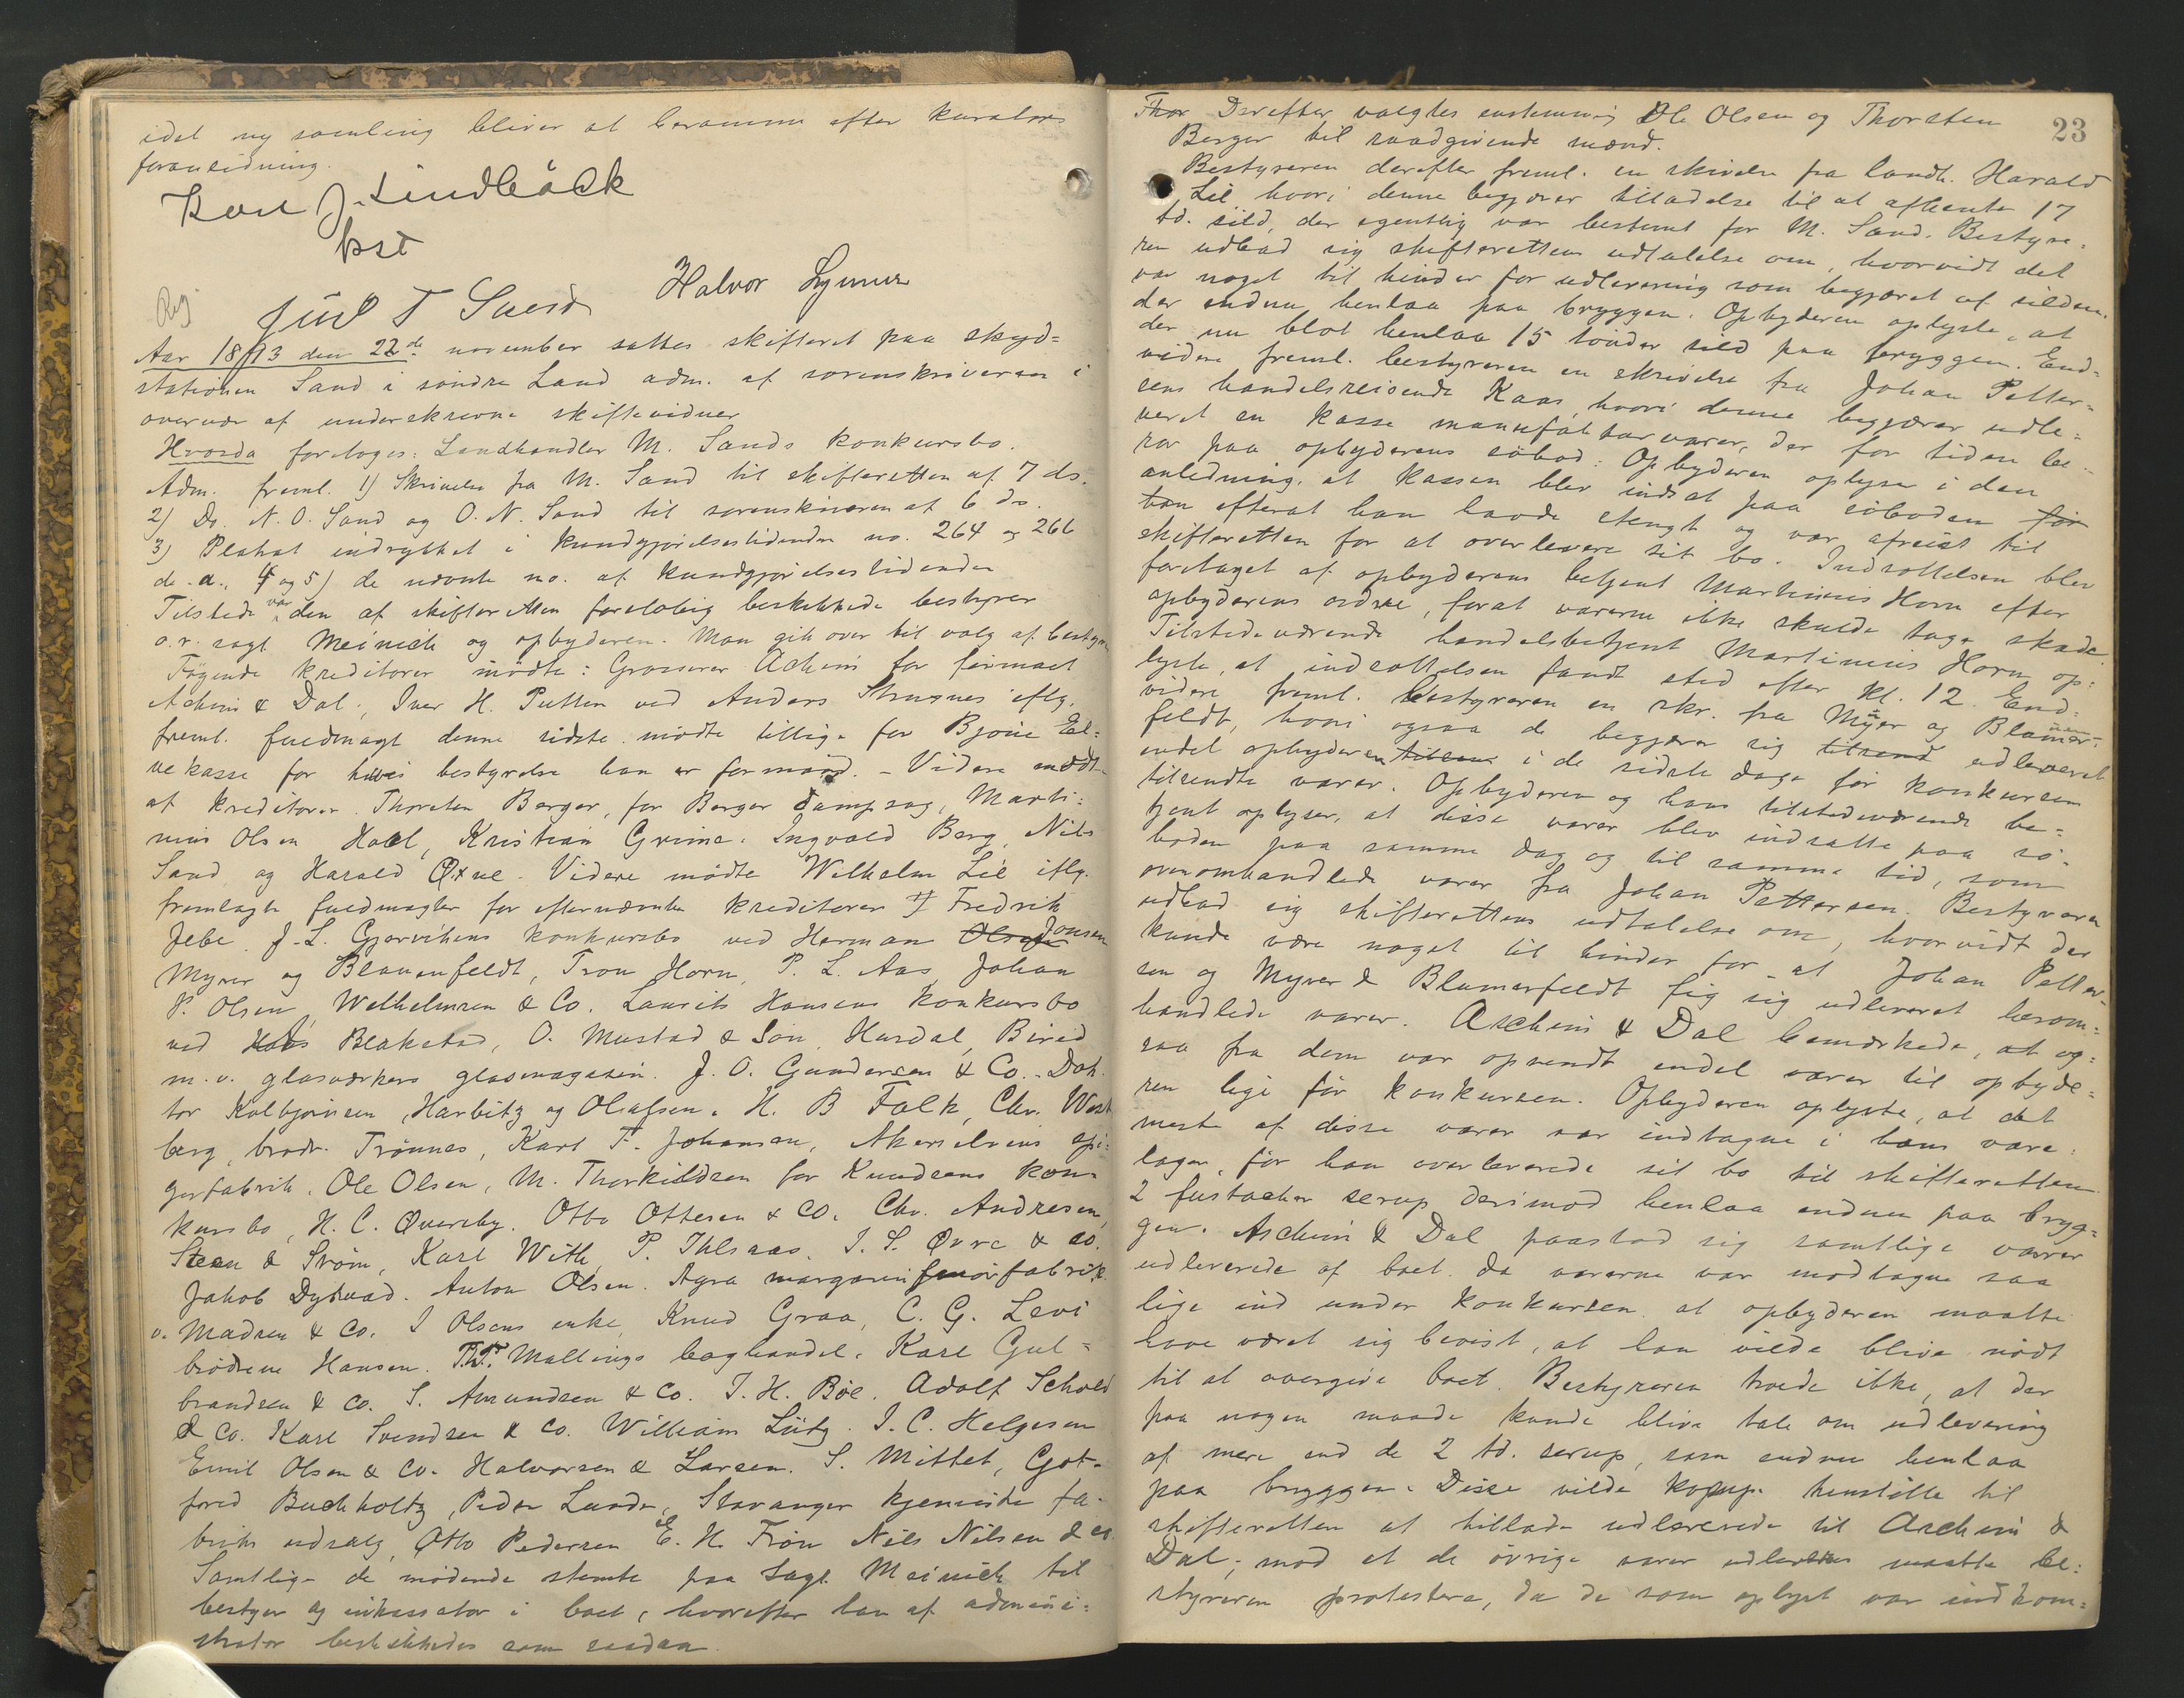 idet ny samling bliver at beramme efter kurators
foranledning.
Karl J. Lindbäck
kst
Halvor Lymm
Juul T Sand
Reg.
Aar 1893 den 22de november sattes skifteret paa skyd=
stationen Sand i søndre Land adm. af sorenskriveren i
overvær af underskrevne skiftevidner
Hvorda foretoges: Landhandler M. Sands konkursbo.
Adm. freml. 1) Skrivelse fra M. Sand til skifteretten af 7 ds.
2) Do. N. O. Sand og O. N. Sand til sorenskriveren af 6 ds.
3) Plakat indrykket i kundgjørelsestidende no. 264 og 266
d. a., 4 og 5) de nævnte no. af kundgjørelsestidende
Tilstede var den af skifteretten foreløbig beskikkede bestyrer
o.r. sagf. Meinich og opbyderen. Man gik over til valg af bestyrer
Følgende kreditorer mødte: Grosserer Acheim for firmaet
Acheim & Dal., Iver H. Putten ved Anders Strugnes iflg.
freml. fuldmagt denne sidste mødte tillige for Bjone El=
vekasse for hvis bestyrelse han er formand. - Videre mødt
af kreditorer Thorsten Berger, for Berger dampsag, Marti=
nius Olsen Hoel, Kristian Grime. Ingvald Berg, Nils
Sand og Harald Øxne. Videre mødte Wilhelm Lie iflg.
fremlagte fuldmagter for efternævnte kreditorer Fredrik
Jebe. J. L. Gjørvikens konkursbo ved Herman Olsen Jonsen
Myrer og Blauenfeldt, Tron Horn, P. L. Aas Johan
P. Olsen, Wilhelmsen & Co. Laurits Hansens konkursbo
ved Blakstad, O. Mustad & Søn, Hurdal, Birid
m. v. glasværkers glasmagasin. J. O. Gundersen & Co. Dok
tor Kolbjørnsen, Harbitz og Olafsen. H. B Falk, Chr. West
berg, brødr. Trønnes, Karl F. Johansen, Akerselvens spi=
gerfabrik. Ole Olsen, M. Thorkildsen for Knudsens kon-
kursbo, H. C. Qvereby. Otto Ottesen & Co. Chr. Andresen,
Steen & Strøm, Karl With, P. Ihlsaas. I. S. Øvre & co.
Jakob Dybwad. Anton Olsen. Agra margarinsmørfabrik
v. Madsen & Co. I Olsens enke, Knud Graa, C. G. Levi
brødrene Hansen. P.T. Mallings boghandel. Karl Gul=
brandsen & Co. S. Amundsen & Co. T. H. Bøe. Adolf Schold
& Co. Karl Svendsen & Co. William Lütz. I. C. Helgesen
Emil Olsen & Co. Halvorsen & Larsen. S. Mittet, Got-
fred Buchholtz, Peder Lunde, Stavanger kjemiske fa-
briks udsalg, Otto Pedersen & E. H. Trøn Nils Nilsen & co.
Samtlige de mødende stemte paa sagf. Meinich til
bestyrer og inkassator i boet, hvorefter han af admini=
strator beskikkedes som saadan.
23
Thor Derefter valgtes enstemmig Ole Olsen og Thorsten
Berger til raadgivende mænd.
Bestyreren derefter freml. en skrivelse fra landh. Harald
Lie hvori denne begjærer tilladelse til at afhente 17
td. sild, der egentlig var bestemt for M. Sand. Bestyre=
ren udbad sig skifterettens udtalelse om, hvorvidt det
var noget til hinder for udlevering som begjæret af silden.
der endnu henlaa paa bryggen. Opbyderen oplyste, at
der nu blot henlaa 15 tønder sild paa bryggen. End=
videre freml. bestyreren en skrivelse fra Johan Petter=
sens handelsreisende Kaas, hvori denne begjærer udle=
veret en kasse manufakturvarer, der for tiden be-
ror paa opbyderens søbod. Opbyderen oplyser i den
anledning, at kassen blev indsat paa søboden før
han efterat han havde stengt og var afreist til
skifteretten for at overlevere sit bo. Indsættelsen blev
foretaget af opbyderens betjent Martinius Horn efter
opbyderens ordre, forat varerne ikke skulde tage skade.
Tilstedeværende handelsbetjent Martinius Horn op=
lyste, at indsættelsen fandt sted efter kl. 12. End=
videre freml. bestyreren en skr. fra Myer og Blauen-
feldt, hvori ogsaa de begjærer sig tilsend udleveret
endel opbyderen tilsen i de sidste dage før konkursen
tilsendte varer. Opbyderen og hans tilstedeværende be=
tjent oplyser, at disse varer blev indsatte paa sø=
boden paa samme dag og til samme tid, som
ovenomhandlede varer fra Johan Pettersen. Bestyreren
udbad sig skifterettens udtalelse om, hvorvidt der
kunde være noget til hinder for at Johan Petter-
sen og Myrer & Blumerfeldt fig sig udleveret berom=
handlede varer. Ascheim & Dal bemærkede, at og=
saa fra dem var opsendt endel varer til opbyde=
ren lige før konkursen. Opbyderen oplyste, at det
meste af disse varer var indtagne i hans vare=
lager, før han overleverede sit bo til skifteretten.
2 fustacher serup derimod henlaa endnu paa bryg=
gen. Ascheim & Dal paastod sig samtlige varer
udleverede af boet, da varerne var modtagne saa
lige ind under konkursen at opbyderen maatte
have været sig bevist, at han vilde blive nødt
til at overgive boet. Bestyreren troede ikke, at der
paa nogen maade kunde blive tale om udlevering
af mere end de 2 td. serup, som endnu henlaa
paa bryggen. Disse vilde komp. henstille til
skifteretten at tillade udleverede til Ascheim &
Dal; mod at de øvrige varer udleveres maatte be=
styreren protestere, da de som oplyst var indkom=